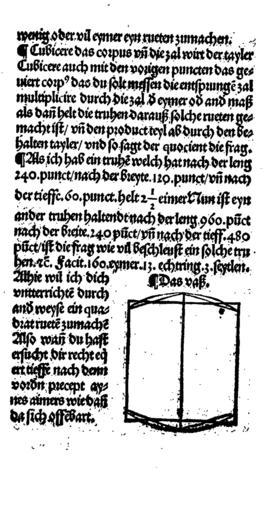 wenig oder vil eymer eyn rueten zumachen.
¶ Cubicere das corpus vñ die zal wirt der tayler
Cubicere auch mit den vorigen puncten das ge⸗
uiert corpꝰ das du solt messen die entspungē zal
multiplicire durch die zal d̄ eymer od̄ and̄ maß
als dañ helt die truhen darauß solche rueten ge⸗
macht ist/ vñ den product teyl ab durch den be⸗
halten tayler/ vnd so sagt der quocient die frag.
¶ Als ich hab ein truhē welch hat nach der leng
240. punct/ nach der breyte. 120. punct/ vñ nach
der tieffe. 60. punct. helt 2 1/2 eimer Nun ist eyn
ander truhen haltendt nach der leng 960. pūct
nach der breite. 240 pūct/ vñ nach der tieff. 480
pūct/ ist die frag wie vil beschleust ein solche tru
hen. ꝛc. Facit. 160. eymer. 13. echtring. 3. seytlen.
Alhie wil ich dich
vnterrichtē durch
and weyse ein qua⸗
drat ruetē zumachē
Also wañ du hast
ersucht dir recht eq̄
ert tieffe nach dem
vordn̄ precept ay⸗
nes aimers wie dañ
da sich offēbart.
¶ Das vaß.